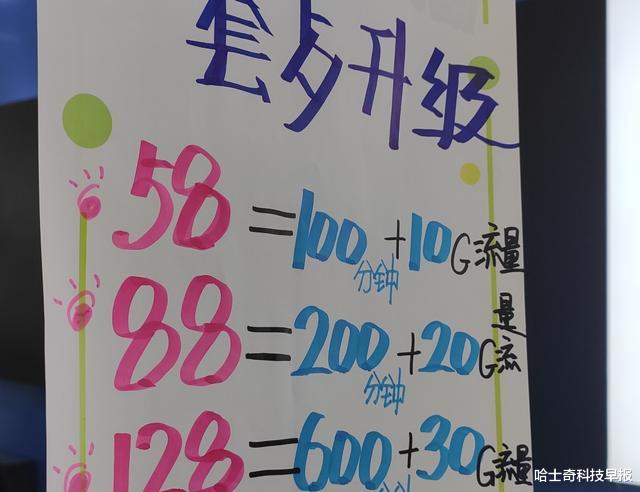 套歺升级
58=100分钟+10G流量
88=200分钟+20G流量
128=600分钟+30G流量
哈士奇科技早报